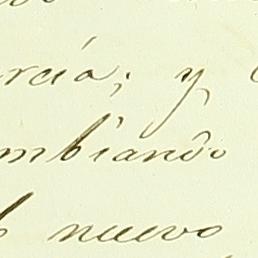 rcia; y
mbiando
nuevo